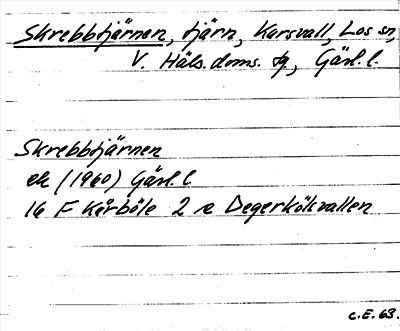 Skrebbtjärnen, tjärn, Karsvall, Los sn,
V. Häls. doms. tg, Gävl. l.
Skrebbtjärnen
ek (1960) Gävl. l
16 F Kårböle 2 e Degerkölsvallen
C.E. 63.